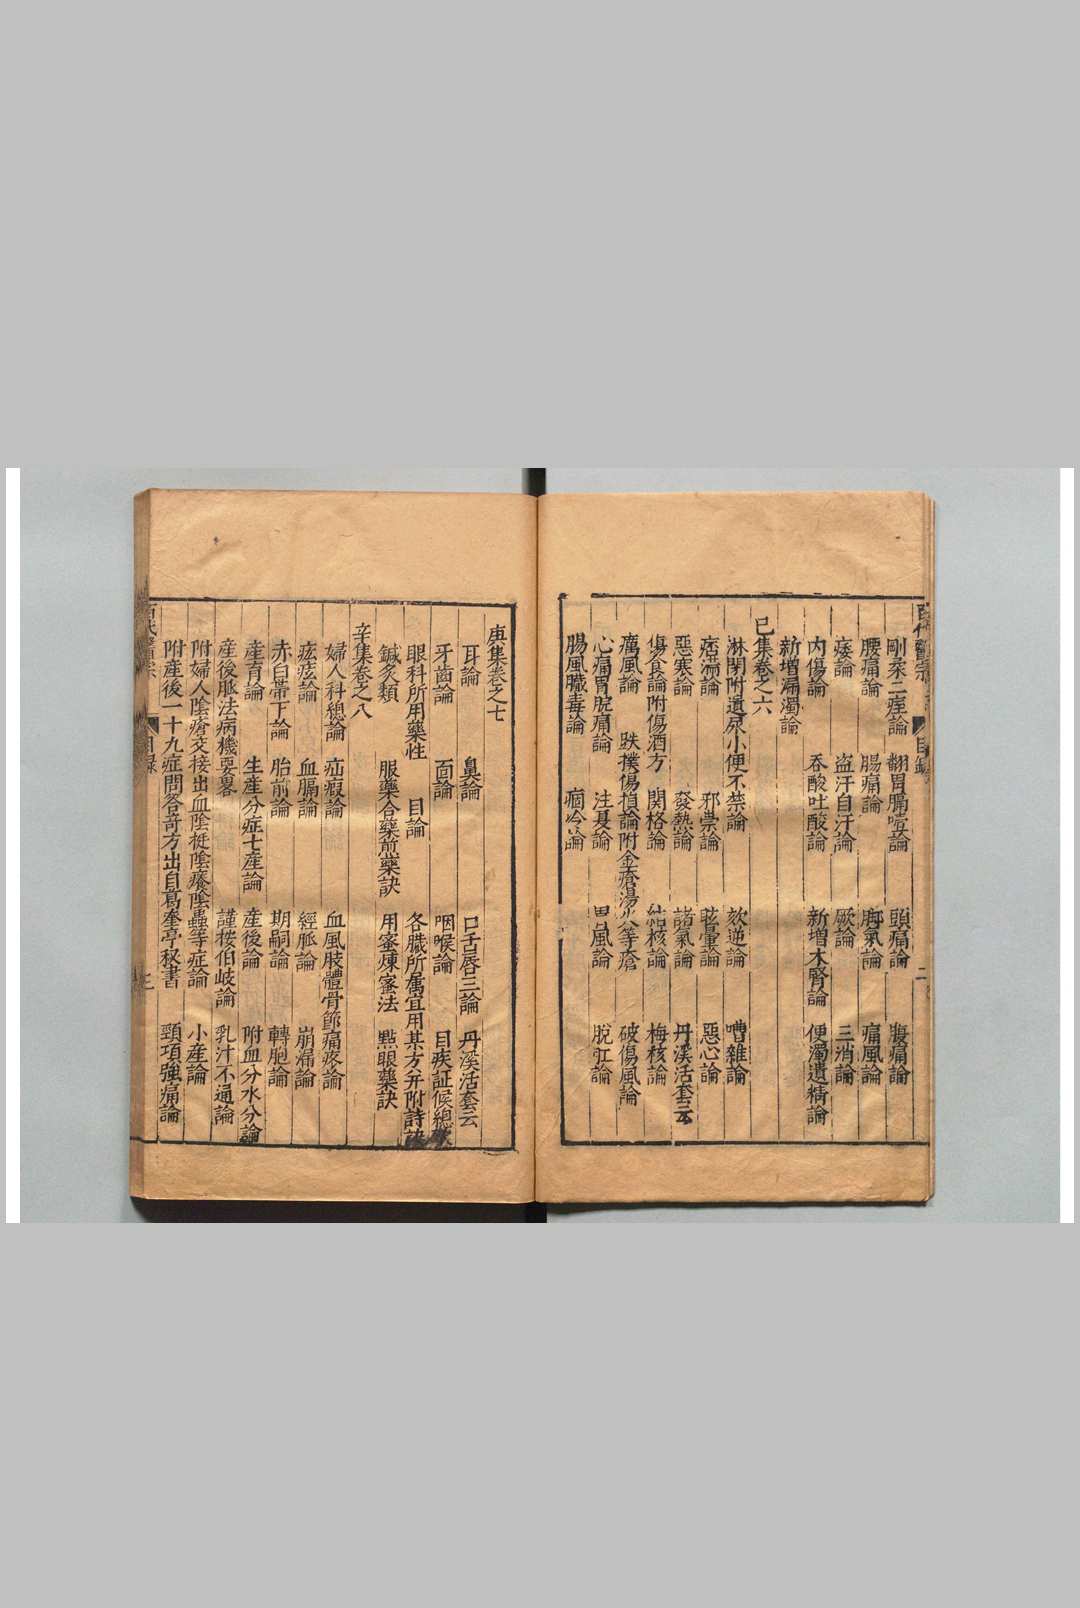 剛柔二痓論 翻胃膈噎論 頭痛論 腹痛論
腰痛論 腸痛論 脚氣論 痛風論
痿論 盗汗自汗論 厥論 三消論
内傷論 吞酸吐酸論 新增木腎論 便濁遺精論
新增漏濁論
巳集卷之六
淋閉附遺尿小便不禁論 欬逆論 嘈雜論
痞滿論 邪祟論 眩暈論 惡心論
惡寒論 發熱論 諸氣論 丹溪活套云
傷食論附傷酒方 関格論 結核論 梅核論
癘風論 跌撲傷損論附金瘡湯火等瘡 破傷風論
心痛胃脘痛論 注夏論 風論 脫肛論
腸風臟毒論 痼冷論
庚集卷之七
耳論 鼻論 口舌唇三論 丹溪活套云
牙齒論 面論 咽喉論 目疾証候總
眼科所用藥性 目論 各臟所属宜用某方并附詩訣
鍼灸類 服藥合藥煎藥訣 用蜜煉蜜法 點眼藥訣
辛集卷之八
婦人科總論 疝瘕論 血風肢體骨節痛疼論
痃痃論 血膈論 經脈論 崩漏論
赤白帶下論 胎前論 期嗣論 轉胞論
産育論 生産分症七産論 産後論 附血分水分論
産後脈法病機要畧 謹按伯岐論 乳汁不通論
附婦人陰瘡交接出血陰挺陰癢陰蟲等症論 小産論
附産後一十九症問答竒方出自葛奎亭秘書 頸項強痛論
目錄